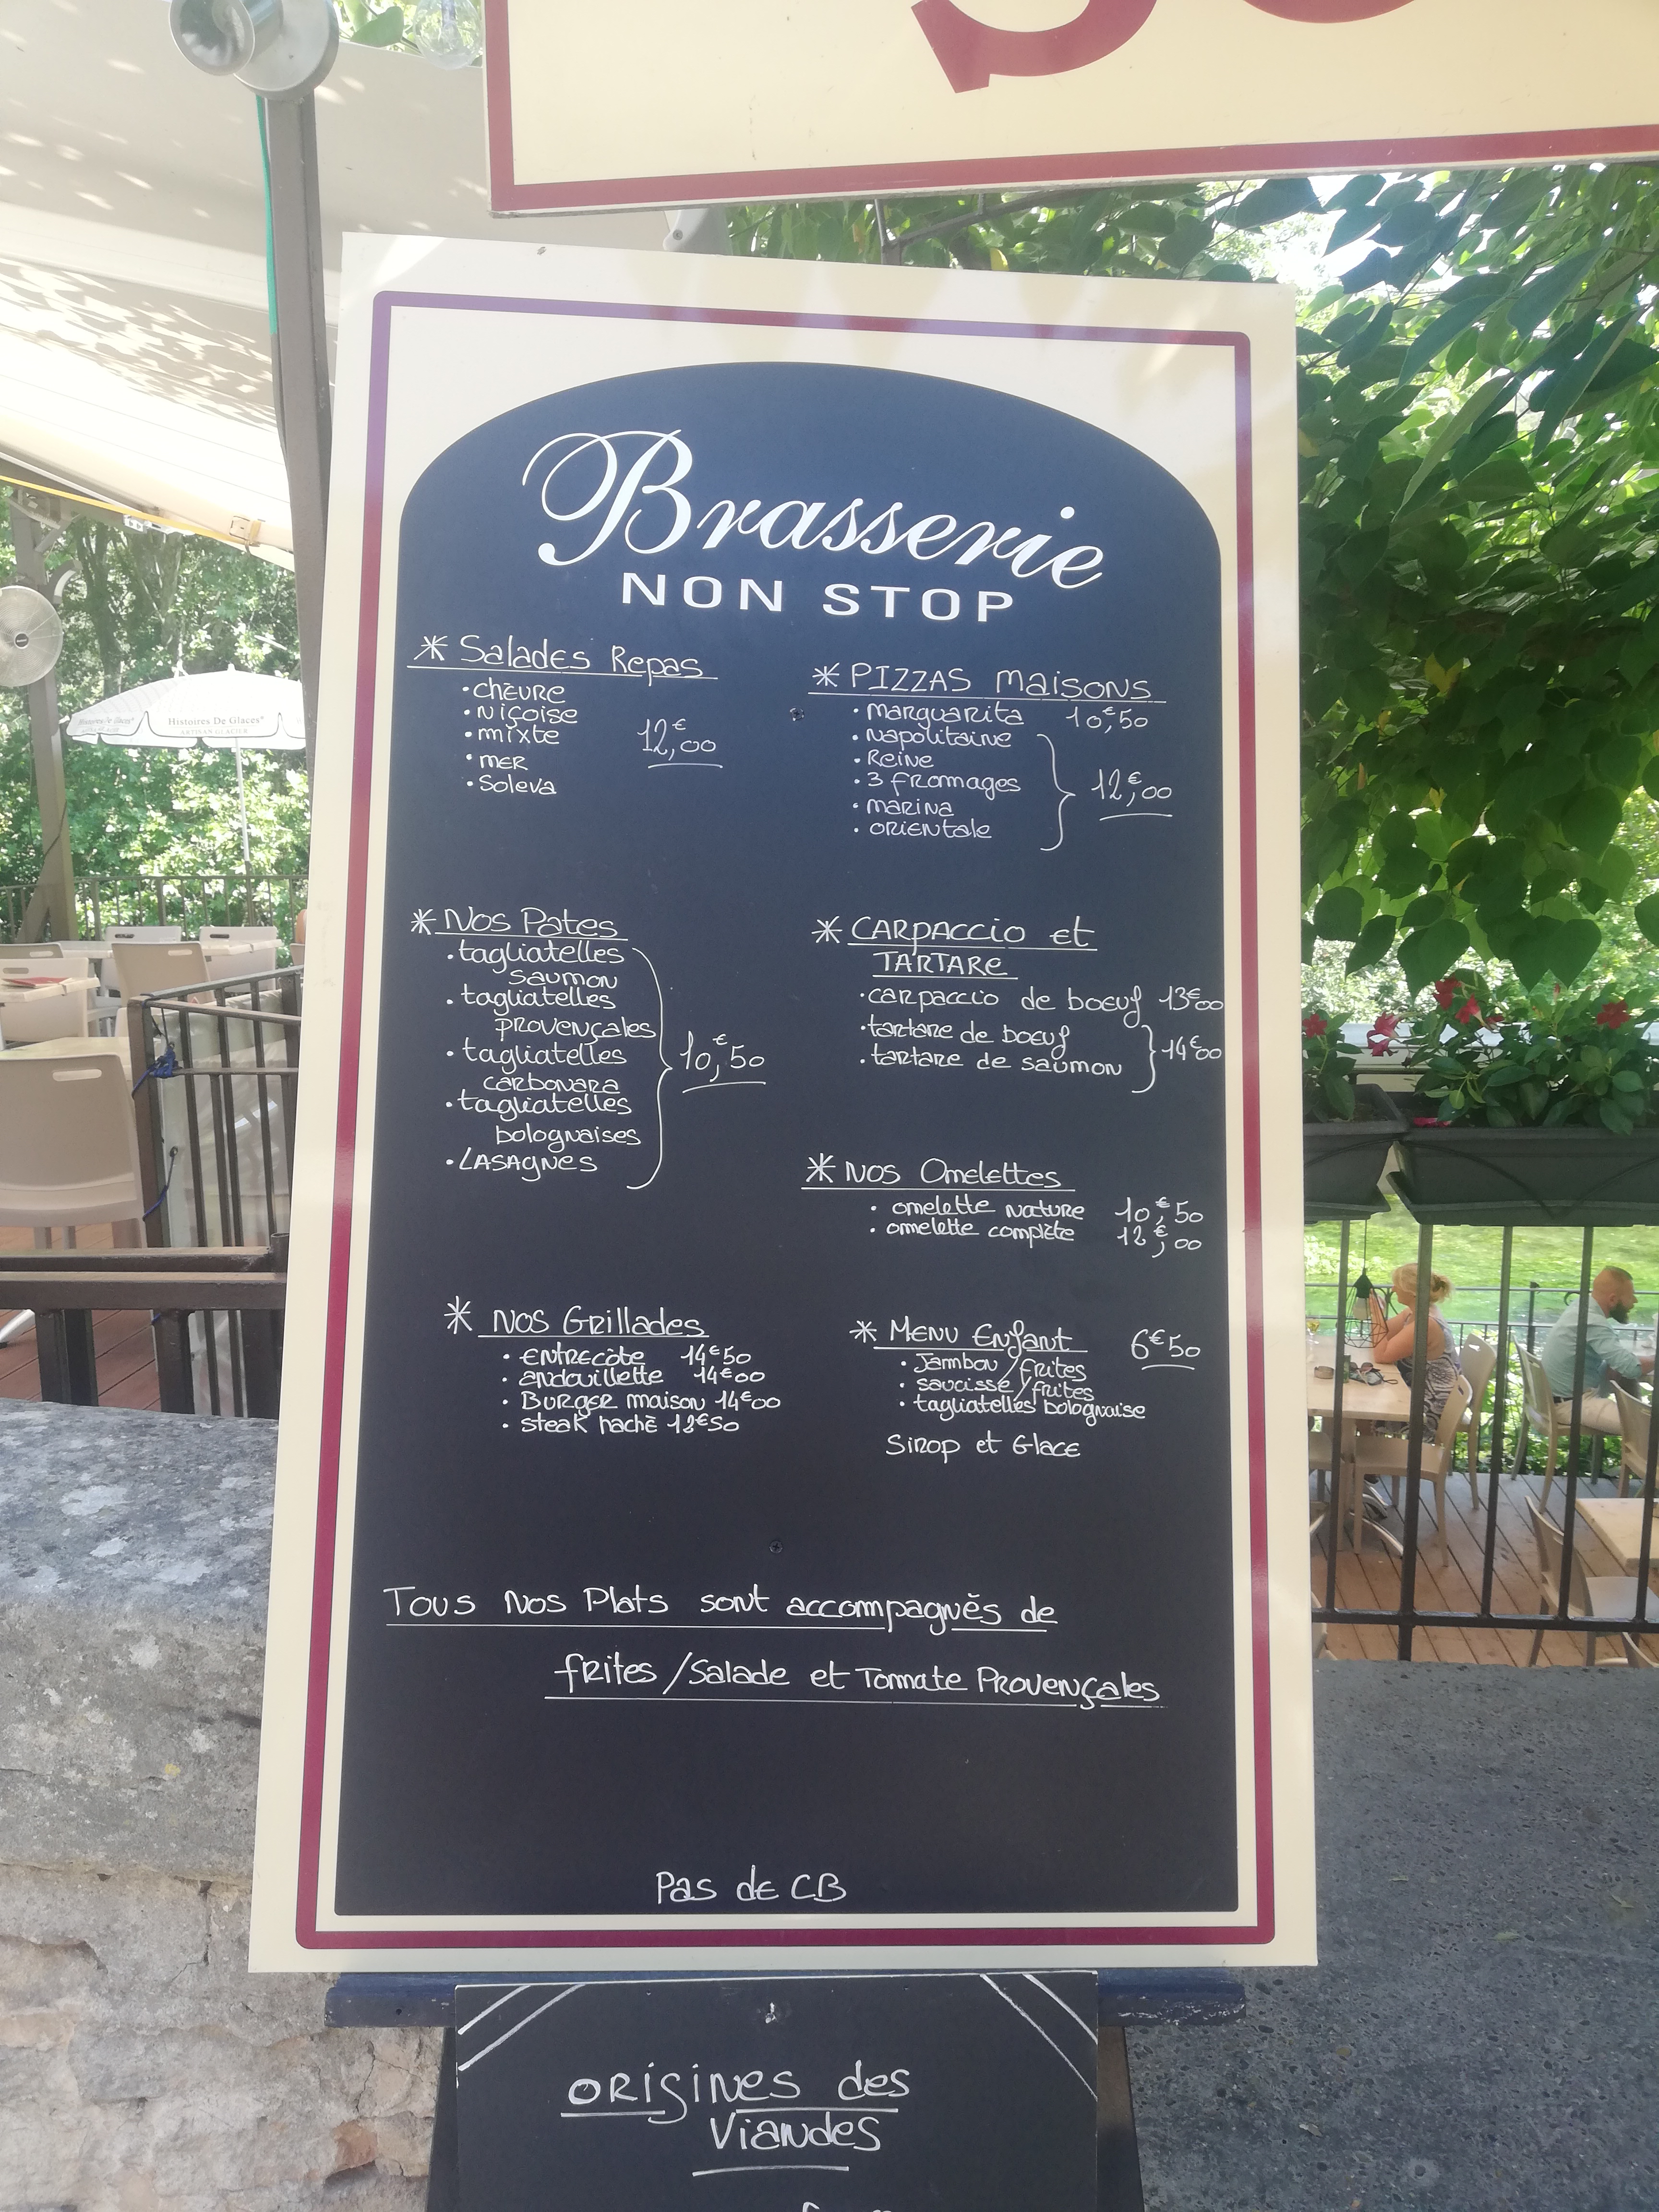 Brasserie
NON STOP
* Salades Repas
• chèvre
• Niçoise
• mixte
• mer
• Soleva
12,€00
* PIZZAS maisons
• marguarita 10,€50
• napolitaine
• Reine
• 3 fromages
• marina
• orientale
12,€00
* Nos Pates
• tagliatelles
saumon
• tagliatelles
provençales
• tagliatelles
carbonara
• tagliatelles
bolognaises
• LASAgnes
10,€50
* CARPACCIO et
TARTARE
• carpaccio de boeuf 13€00
• tartare de boeuf
• tartare de saumon
14€00
* Nos Omelettes
• omelette nature 10,€50
• omelette complète 12,€00
* Nos Grillades
• Entrecôte 14€50
• andouillette 14€00
• Burger maison 14€00
• steak haché
* Menu Enfant 6€50
• Jambon/frites
• saucisse/frites
• tagliatelles bolognaise
Sirop et Glace
Tous Nos Plats sont accompagnés de
frites/Salade et Tomate Provençales
Pas de CB
origines des
Viandes
Histoires De Glaces
ARTISAN GLACIER